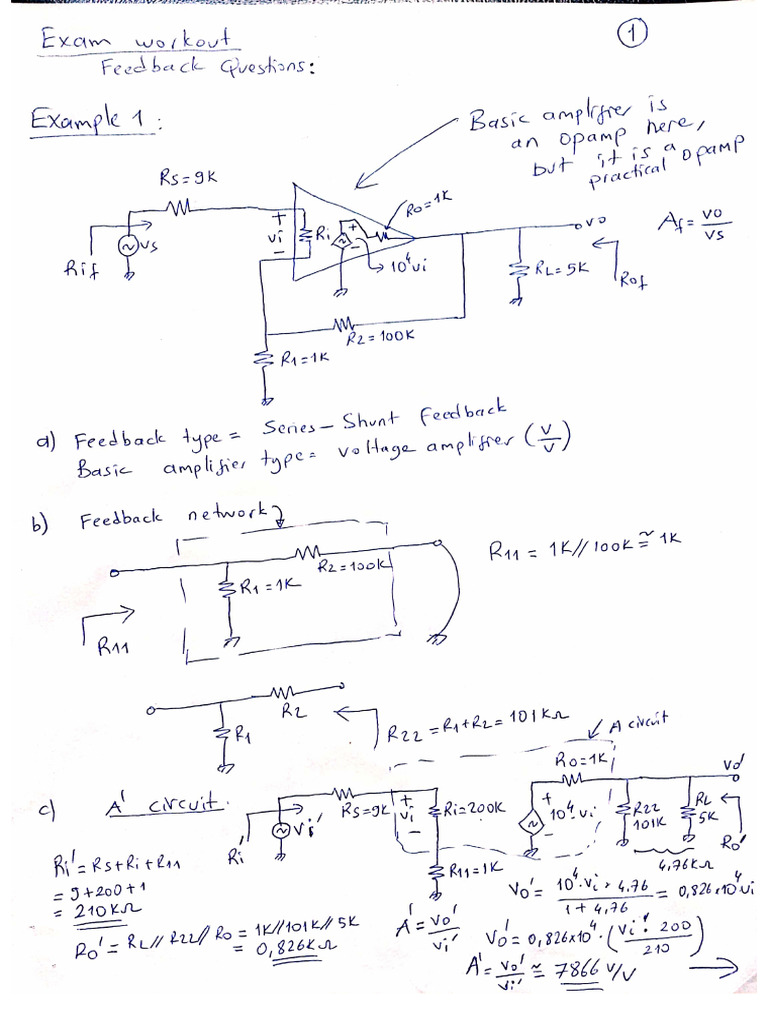 Exam workout
1
Feedback Questions:
Example 1:
Basic amplifier is
an opamp here,
but it is a
practical opamp
Rs=9K
Ro=1K
+
vi
-
Ri
+
-
vo
Af=vo/vs
vs
Rif
10⁴vi
RL=5K
Rof
R2=100K
R1=1K
a) Feedback type = Series-Shunt feedback
Basic amplifier type= voltage amplifier (V/V)
b) Feedback network
R2=100K
R11 = 1K//100K≅1K
R1=1K
R11
R2
R1
R22=R1+R2=101KΩ
A circuit
c) A' circuit.
Ro=1K
Vo'
Rs=9K
+
vi
-
Ri=200K
+
10⁴vi
-
R22
101K
RL
5K
Vi'
Ri'
Ro'
4,76KΩ
R11=1K
Ri'=Rs+Ri+R11
=9+200+1
=210KΩ
Vo'= 10⁴.vi*4,76/1+4,76 = 0,826*10⁴vi
Ro'=RL//R22//Ro = 1K//101K//5K
= 0,826KΩ
A'=vo'/vi'
Vo'=0,826x10⁴.(vi'.200/210)
A'=vo'/vi'≅7866 V/V